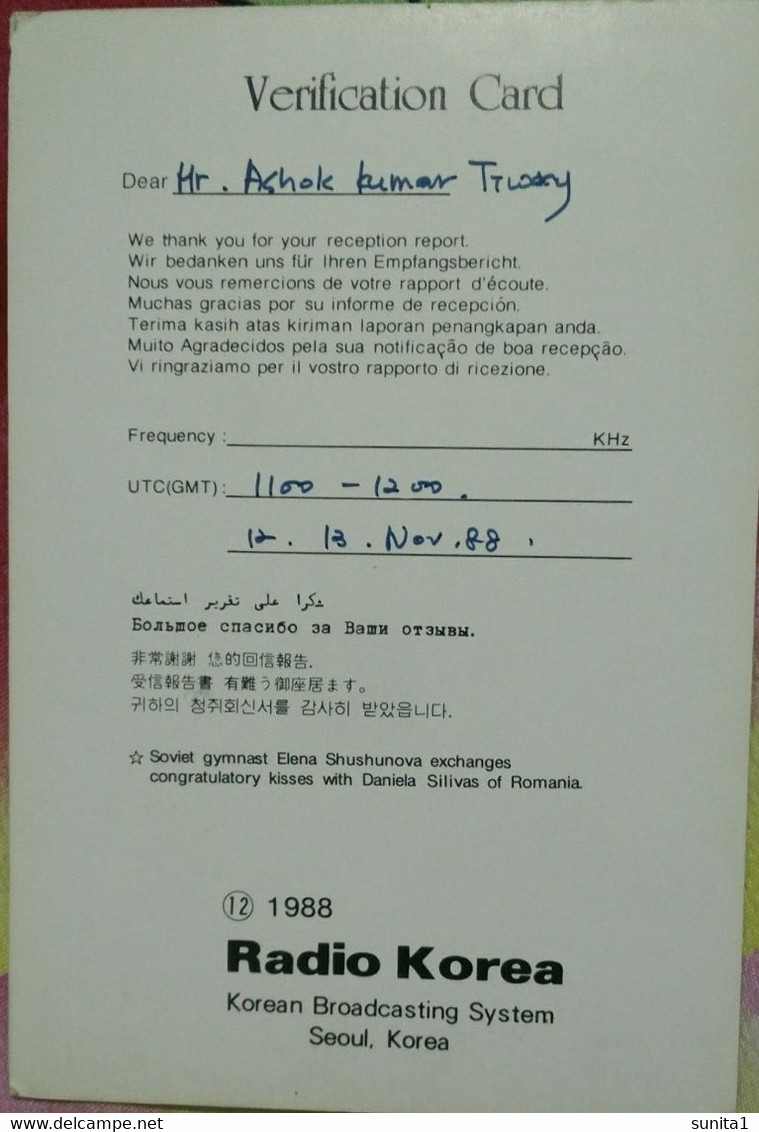 Verification Card
Dear Mr. Ashok kumar
We thank you for your reception report.
Wir bedanken uns für Ihren Empfangsbericht.
Nous vous remercions de votre rapport d'écoute.
Muchas gracias por su informe de recepción.
Terima kasih atas kiriman laporan penangkapan anda.
Muito Agradecidos pela sua notificação de boa recepção.
Vi ringraziamo per il vostro rapporto di ricezione.
Frequency : KHz
UTC(GMT) : 1100 - 1200.
12. 13. Nov. 88.
شكرا على تقرير استماعك
Большое спасибо за Ваши отзывы.
非常謝謝 您的回信報告.
受信報告書 有難う御座居ます。
귀하의 청취회신서를 감사히 받았읍니다.
☆ Soviet gymnast Elena Shushunova exchanges
congratulatory kisses with Daniela Silivas of Romania.
⑫ 1988
Radio Korea
Korean Broadcasting System
Seoul, Korea
www.delcampe.net
sunita1